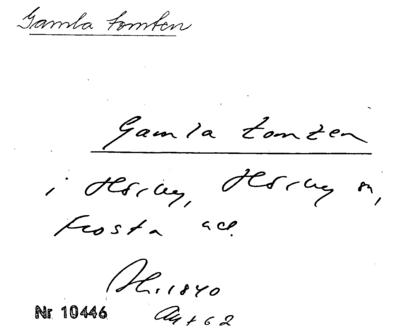 Gamla tomten
Gamla tomten
i Hörby, Hörby sn,
Frosta hd.
1840
Nr 10446